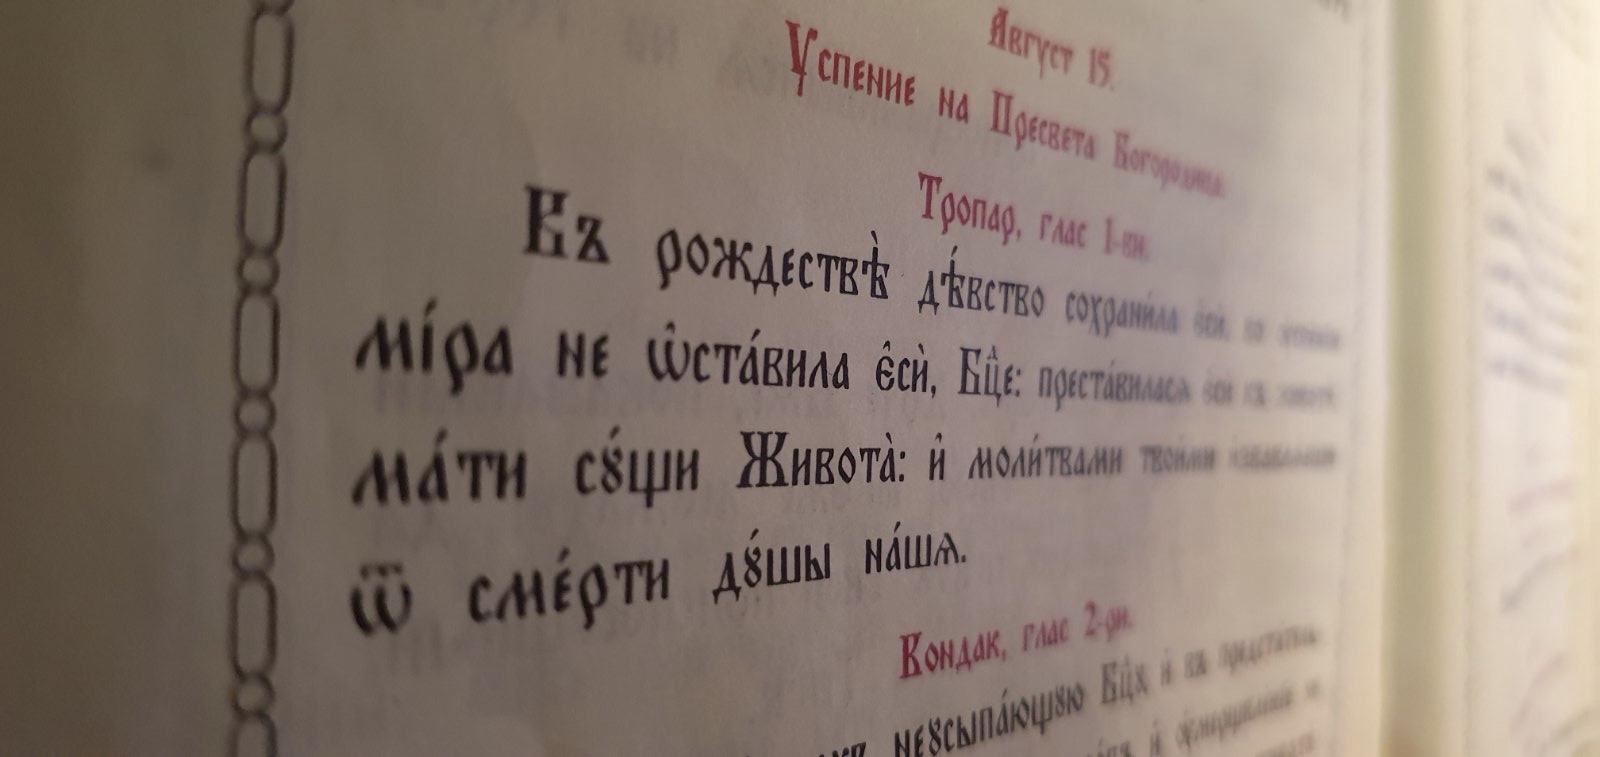 Август 15.
Успение на Пресвета Богородица
Тропар, глас 1-ви.
Въ рождествѣ̀ дѣ́вство сохрани́ла є҆сѝ,
мі́ра не ѡ҆ста́вила є҆сѝ, Бц҃е: преста́виласѧ є҆сѝ къ животꙋ̀
ма́ти сꙋ́щи Живота̀: и҆ моли́твами твои́ми
ѿ сме́рти дꙋ́шы на́шѧ.
Кондак, глас 2-ри.
неꙋсыпа́ющꙋю Бц҃ꙋ и҆ въ